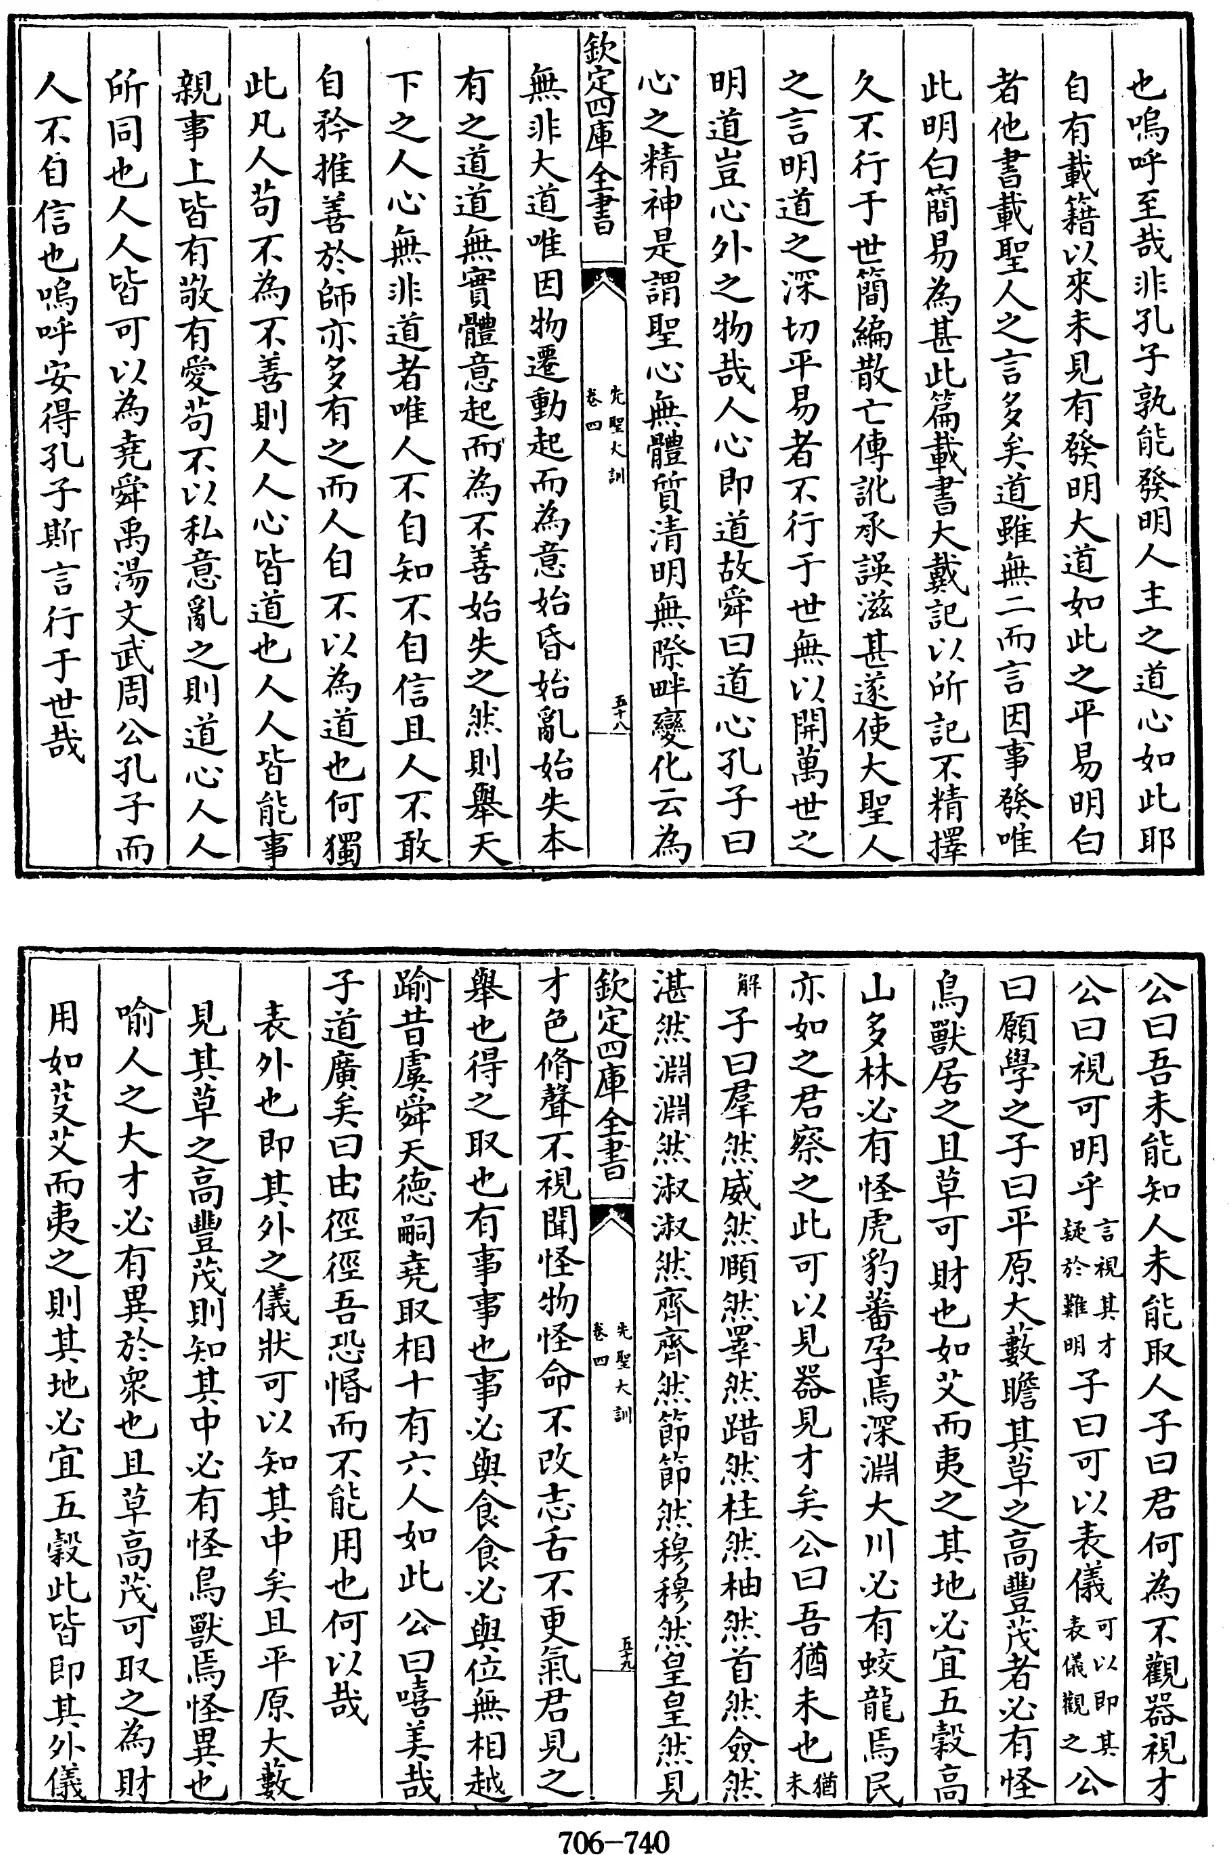 也嗚呼至哉非孔子孰能發明人主之道心如此耶
自有載籍以來未見有發明大道如此之平易明白
者他書載聖人之言多矣道雖無二而言因事發唯
此明白簡易為甚此篇載書大戴記以所記不精擇
久不行于世簡編散亡傳訛承誤滋甚遂使大聖人
之言明道之深切平易者不行于世無以開萬世之
明道豈心外之物哉人心即道故舜曰道心孔子曰
心之精神是謂聖心無體質清明無際畔變化云為
欽定四庫全書
先聖大訓
卷四
五十八
無非大道唯因物遷動起而為意始昏始亂始失本
有之道道無實體意起而為不善始失之然則舉天
下之人心無非道者唯人不自知不自信且人不敢
自矜推善於師亦多有之而人自不以為道也何獨
此凡人苟不為不善則人人心皆道也人人皆能事
親事上皆有敬有愛苟不以私意亂之則道心人人
所同也人人皆可以為堯舜禹湯文武周公孔子而
人不自信也嗚呼安得孔子斯言行于世哉
公曰吾未能知人未能取人子曰君何為不觀器視才
公曰視可明乎言視其才疑於難明子曰可以表儀可以即其表儀觀之公
曰願學之子曰平原大藪瞻其草之高豐茂者必有怪
鳥獸居之且草可財也如艾而夷之其地必宜五穀高
山多林必有怪虎豹蕃孕焉深淵大川必有蛟龍焉民
亦如之君察之此可以見器見才矣公曰吾猶未也猶未
解子曰羣然威然頤然睪然踖然柱然柚然首然僉然
湛然淵淵然淑淑然齊齊然節節然穆穆然皇皇然見
欽定四庫全書
先聖大訓
卷四
五十九
才色脩聲不視聞怪物怪命不改志舌不更氣君見之
舉也得之取也有事事也事必與食食必與位無相越
踰昔虞舜天德嗣堯取相十有六人如此公曰嘻美哉
子道廣矣曰由徑徑吾恐惛而不能用也何以哉
表外也即其外之儀狀可以知其中矣且平原大藪
見其草之高豐茂則知其中必有怪鳥獸焉怪異也
喻人之大才必有異於眾也且草高茂可取之為財
用如芟艾而夷之則其地必宜五穀此皆即其外儀
706-740